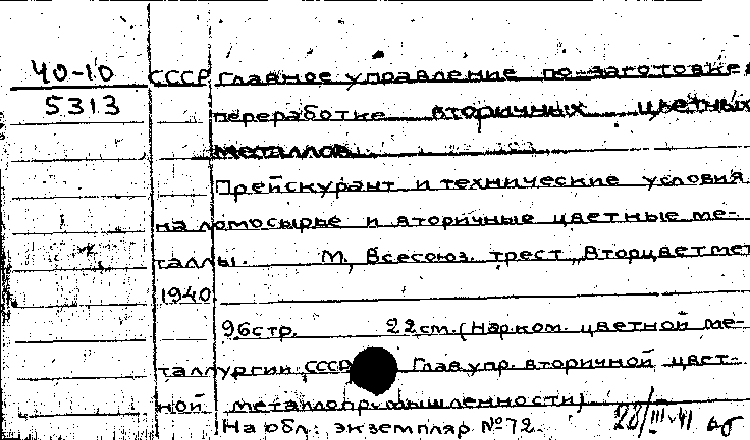 40-10
5313
СССР Главное управление по заготовке
переработке вторичных цветных
металлов.
Прейскурант и технические условия
на ломосырье и вторичные цветные ме-
таллы. М, Всесоюз. трест „Вторцветмет
1940
96стр. 22см. (Нарком. цветной ме-
таллургии СССР Главупр. вторичной цвет-
ной металлопромышленности)
На обл.: экземпляр №72.
28/III-41